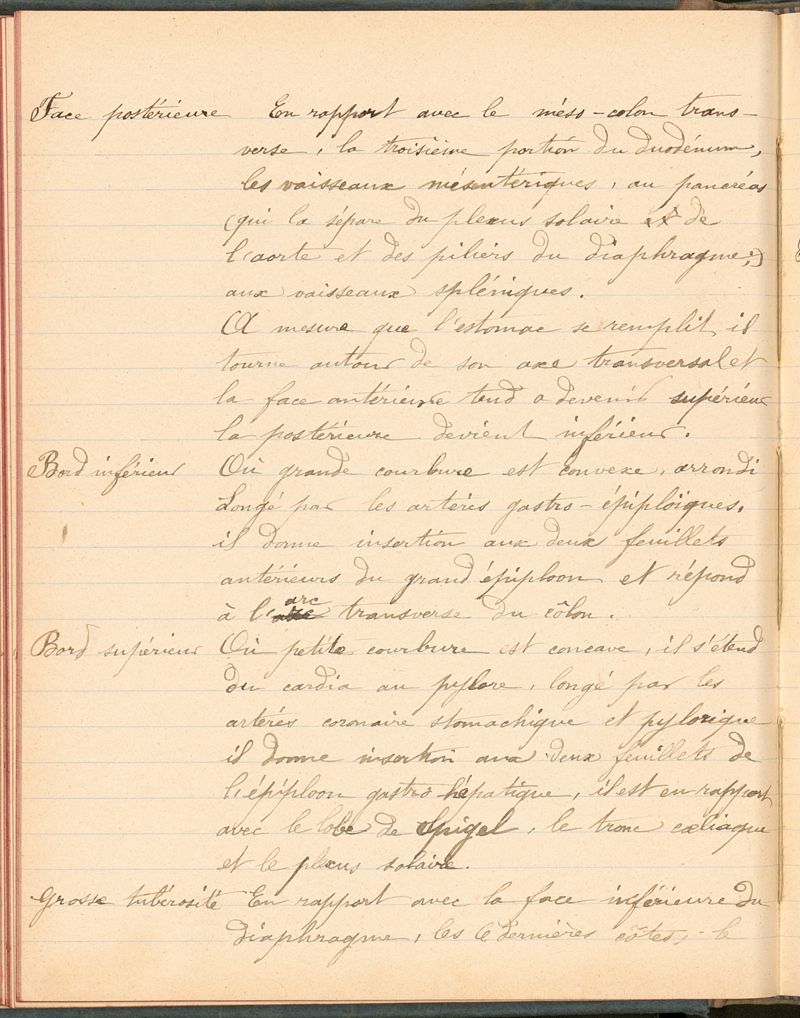 Face postérieure En rapport avec le méso-colon trans-
verse, la troisième portion du duodénum,
les vaisseaux mésentériques, au pancréas
(qui la sépare du plexus solaire et de
l'aorte et des piliers du diaphragme,)
aux vaisseaux spléniques.
A mesure que l'estomac se remplit, il
tourne autour de son axe transversal et
la face antérieure tend a devenir supérieur
la postérieure devient inférieur.
Bord inférieur Où grande courbure est convexe, arrondi
Longé par les artères gastro-épiploïques,
il donne insertion aux deux feuillets
antérieurs du grand épiploon et répond
à l'arc transverse du côlon.
Bord supérieur Où petite courbure est concave, il s'étend
du cardia au pylore, longé par les
artères coronaire stomachique et pylorique
il donne insertion aux deux feuillets de
l'épiploon gastro hépatique, il est en rapport
avec le lobe de Spigel, le tronc cœliaque
et le plexus solaire.
Grosse tubérosité En rapport avec la face inférieure du
diaphragme, les 6 dernières côtes, le